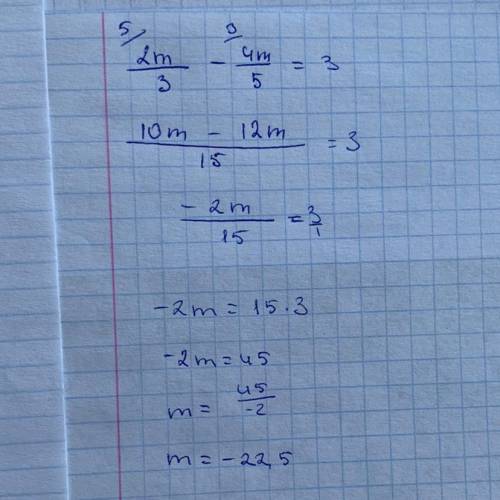 5/ 3/
2m/3 - 4m/5 = 3
10m - 12m/15 = 3
- 2m/15 = 3/1
-2m = 15 · 3
-2m = 45
m = 45/-2
m = -22,5